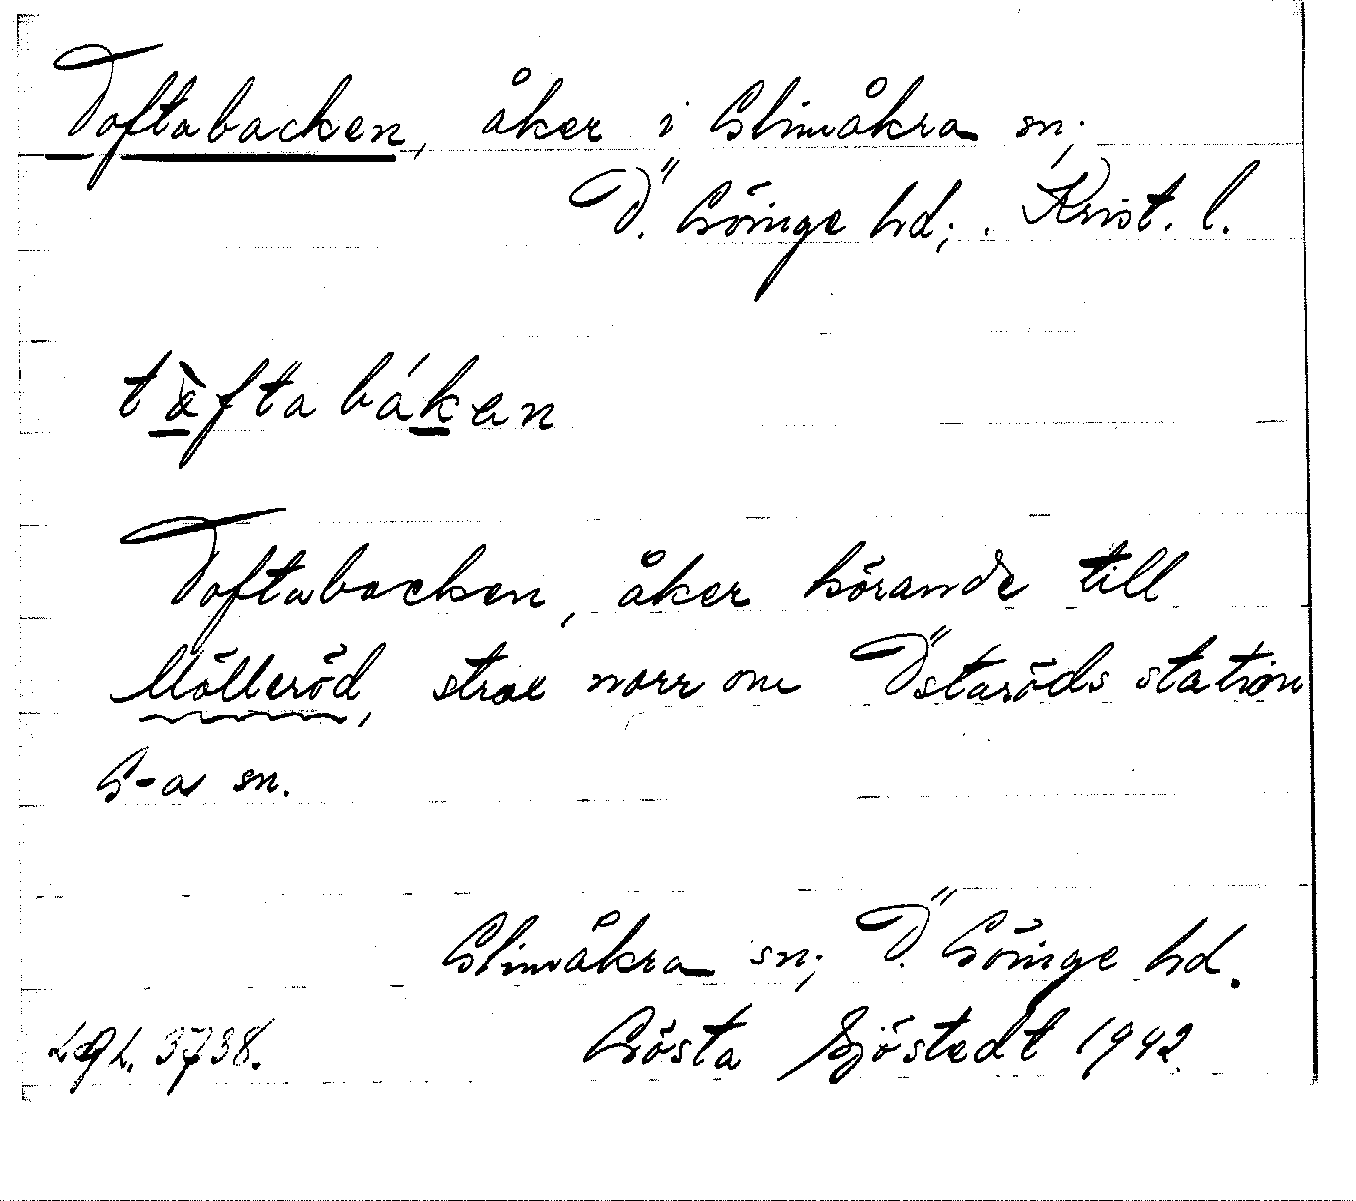 Toftabacken, åker i Glimåkra sn;
Ö. Göinge hd; Krist. l.
tàftabákan
Toftabacken, åker hörande till
Mölleröd, strax norr om Östaröds station
G-a sn.
Glimåkra sn; Ö. Göinge hd.
LgL. 3738. Gösta Sjöstedt 1942